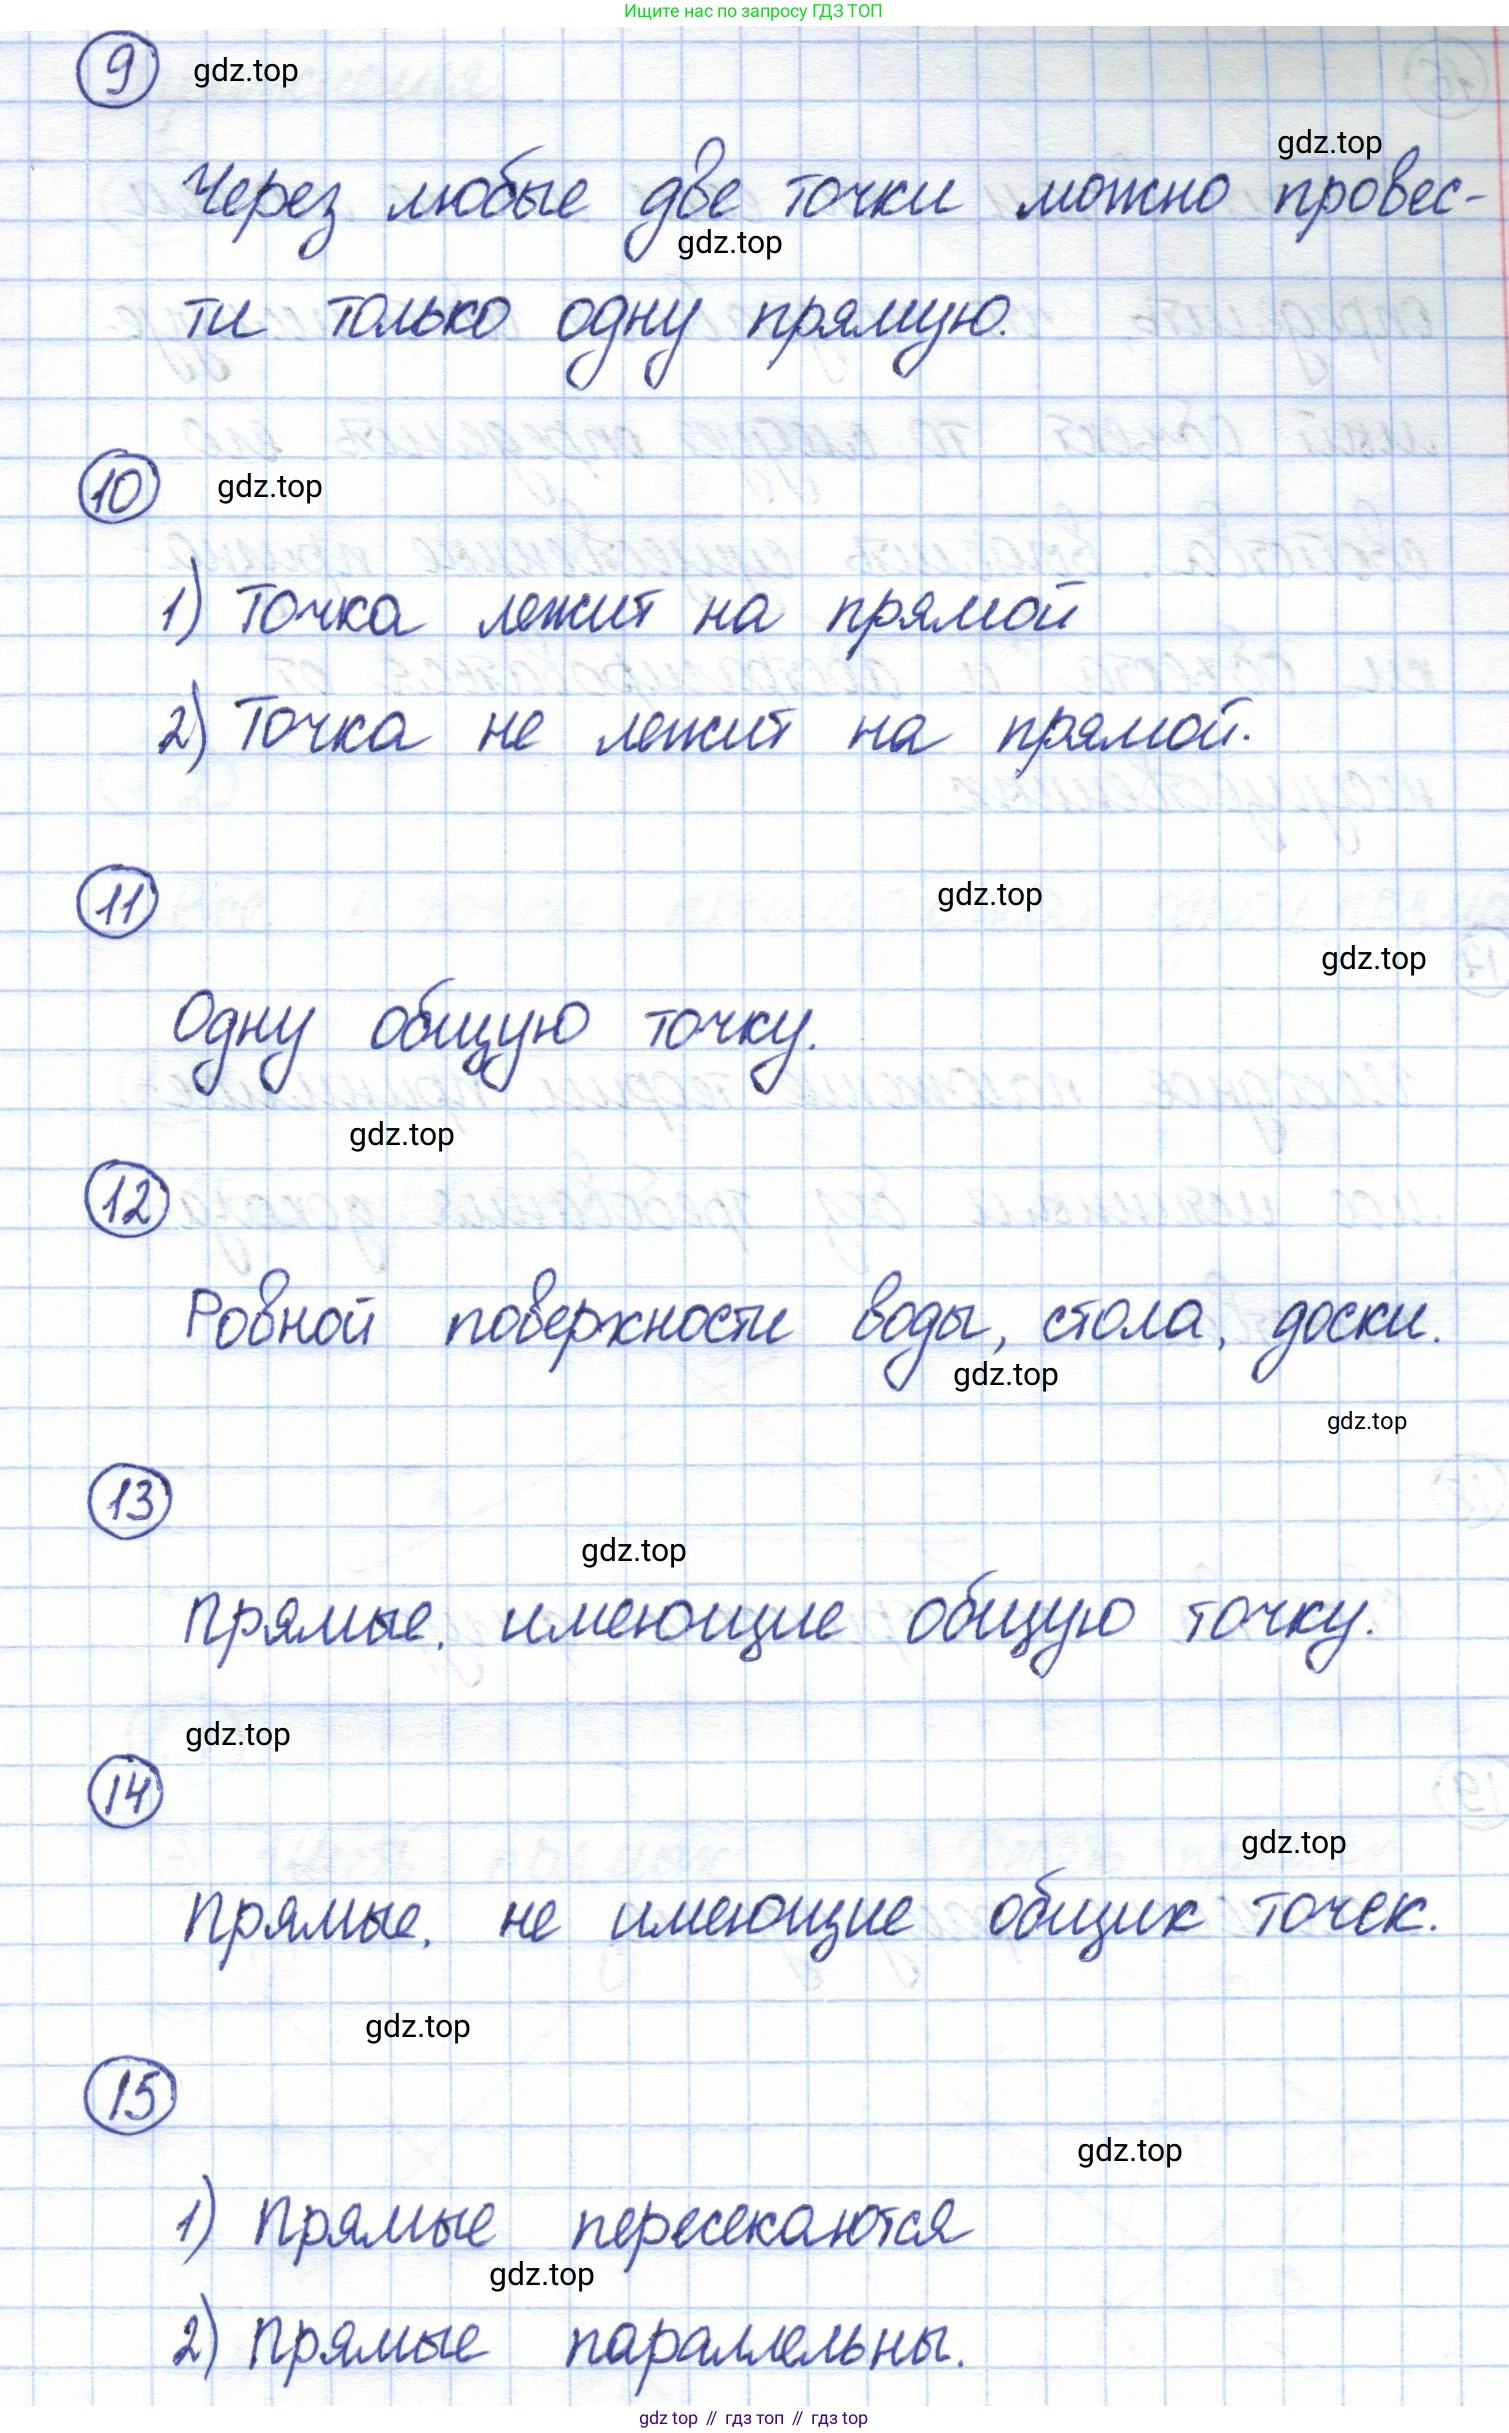 Ищите нас по запросу ГДЗ ТОП
9 gdz.top
gdz.top
Через любые две точки можно провес-
gdz.top
ти только одну прямую.
10 gdz.top
1) Точка лежит на прямой
2) Точка не лежит на прямой.
11 gdz.top
gdz.top
Одну общую точку.
gdz.top
12
Ровной поверхности воды, стола, доски.
gdz.top
gdz.top
13
gdz.top
Прямые, имеющие общую точку.
gdz.top
14
gdz.top
Прямые, не имеющие общих точек.
gdz.top
15
gdz.top
1) Прямые пересекаются
gdz.top
2) Прямые параллельны.
gdz top // гдз топ // гдз top